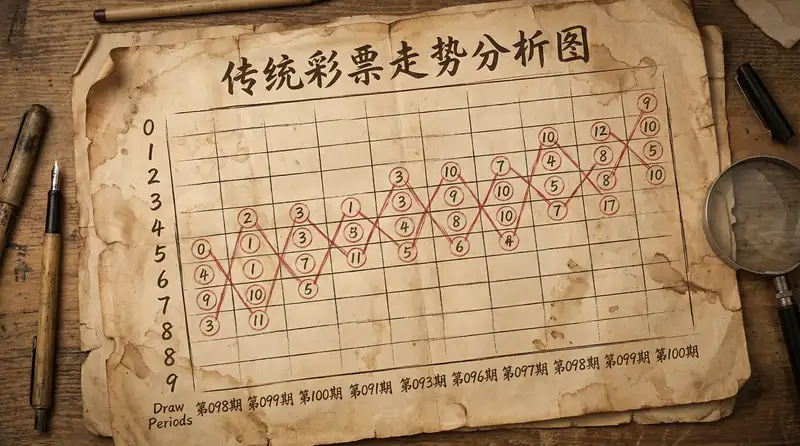 传统彩票走势分析图
0
1
2
3
4
5
6
7
8
8
9
0
4
9
3
2
1
1
10
11
3
3
7
5
1
3
11
3
3
4
5
10
9
8
6
7
10
10
4
10
4
5
7
12
8
8
17
9
10
5
10
Draw Periods 第098期 第099期 第100期 第091期 第093期 第096期 第097期 第098期 第099期 第100期